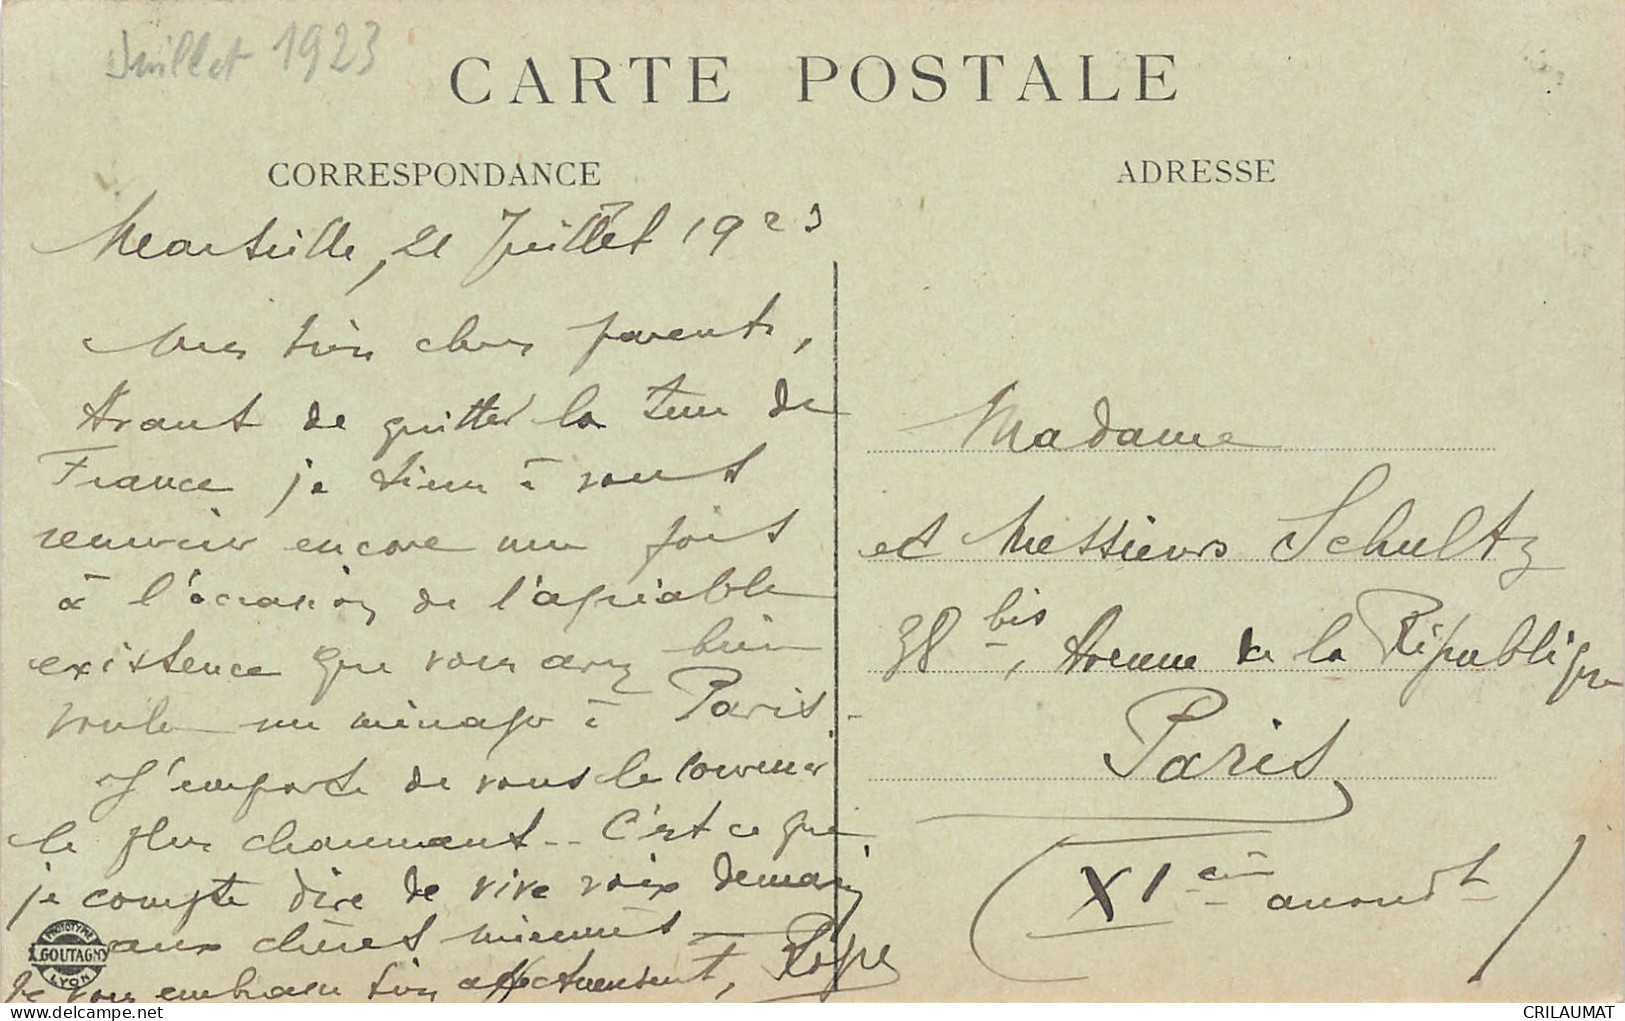 Juillet 1923
CARTE POSTALE
CORRESPONDANCE
Marseille, 21 Juillet 1923
Mes bien chers parents,
Avant de quitter la terre de
France je tiens à vous
remercier encore une fois
à l'occasion de l'agréable
existence que vous avez bien
voulu me ménager à Paris.
J'emporte de vous le souvenir
le plus charmant... C'est ce que
je compte dire de vive voix demain
aux chères
Je vous embrasse bien affectueusement,
PHOTOTYPIE
GOUTAGNY
LYON
ADRESSE
Madame
et Messieurs Schultz
38 bis, Avenue de la République
Paris
(XI ème arrondt)
CRILAUMAT